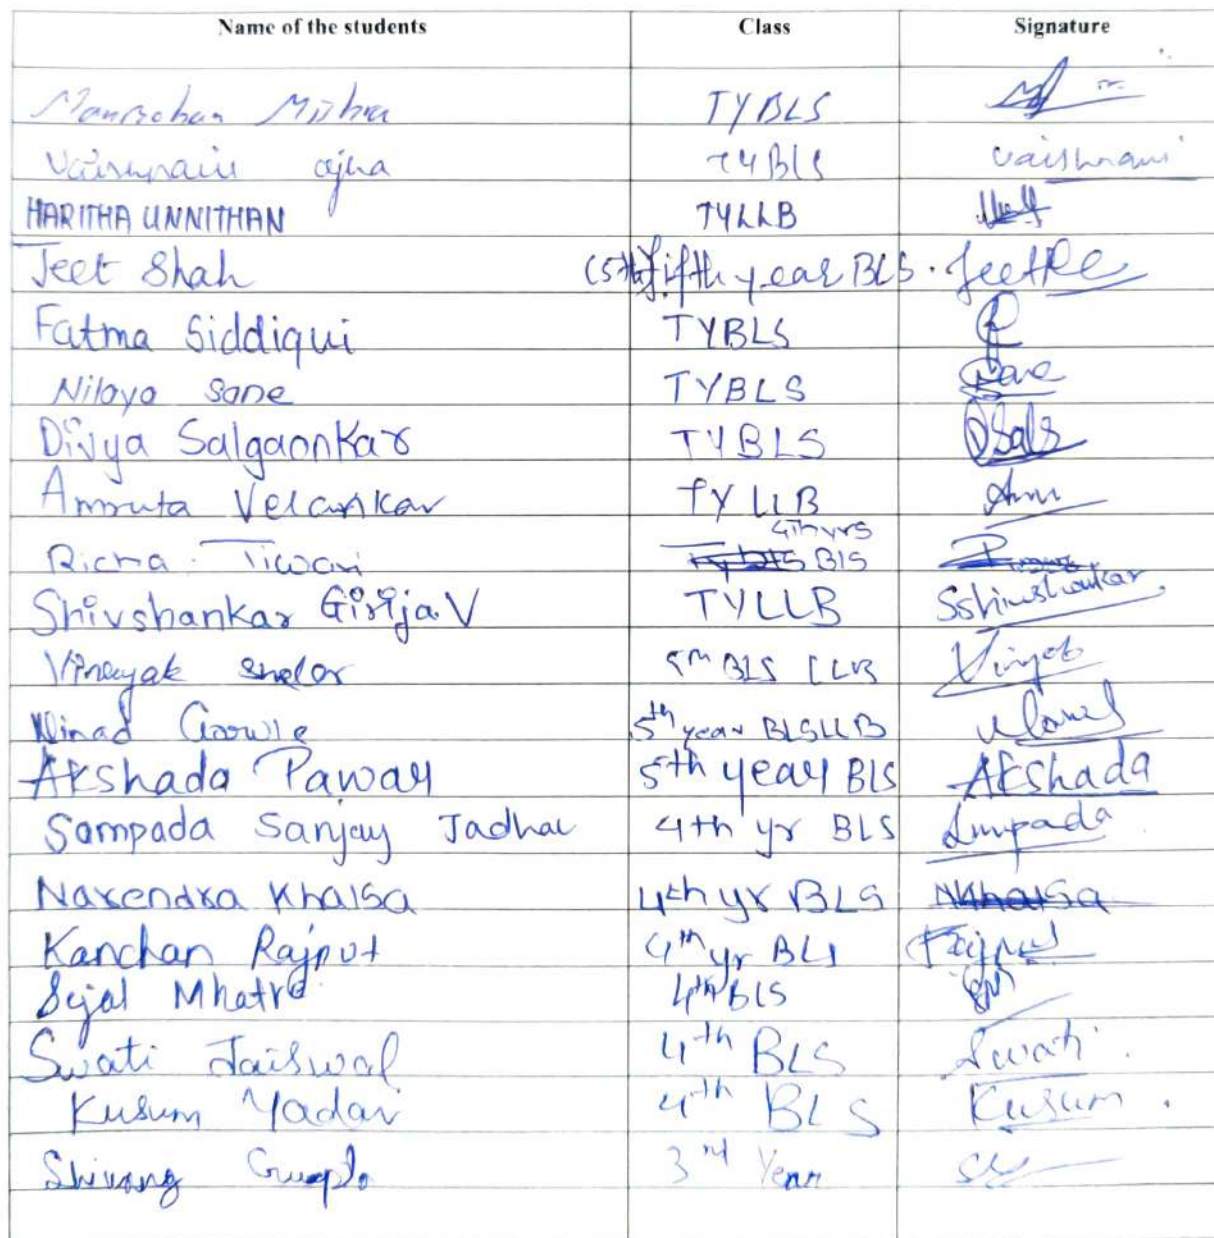 Name of the students Class Signature
Manmohan Mishra TYBLS
Vaishnavi ojha TYBLS Vaishnavi
HARITHA UNNITHAN TYLLB
Jeet Shah (5th) fifth year BLS.
Fatma Siddiqui TYBLS
Nilaya Sane TYBLS Sane
Divya Salgaonkar TYBLS DSals
Amruta Velankar TYLLB Amr
Richa Tiwari 4th yrs BLS
Shivshankar Girija V TYLLB Sshivshankar
Vinayak Shelar 5th BLS LLB
Ninad 5th year BLSLLB
Akshada Pawar 5th year BLS Akshada
Sampada Sanjay Jadhav 4th yr BLS Sampada
Narendra Khalsa 4th yr BLS NKhalsa
Kanchan Rajput 4th yr BLS Rajput
Sejal Mhatre 4th BLS
Swati Jaiswal 4th BLS Swati.
Kusum Yadav 4th BLS Kusum.
Shivang Gupta 3rd Year